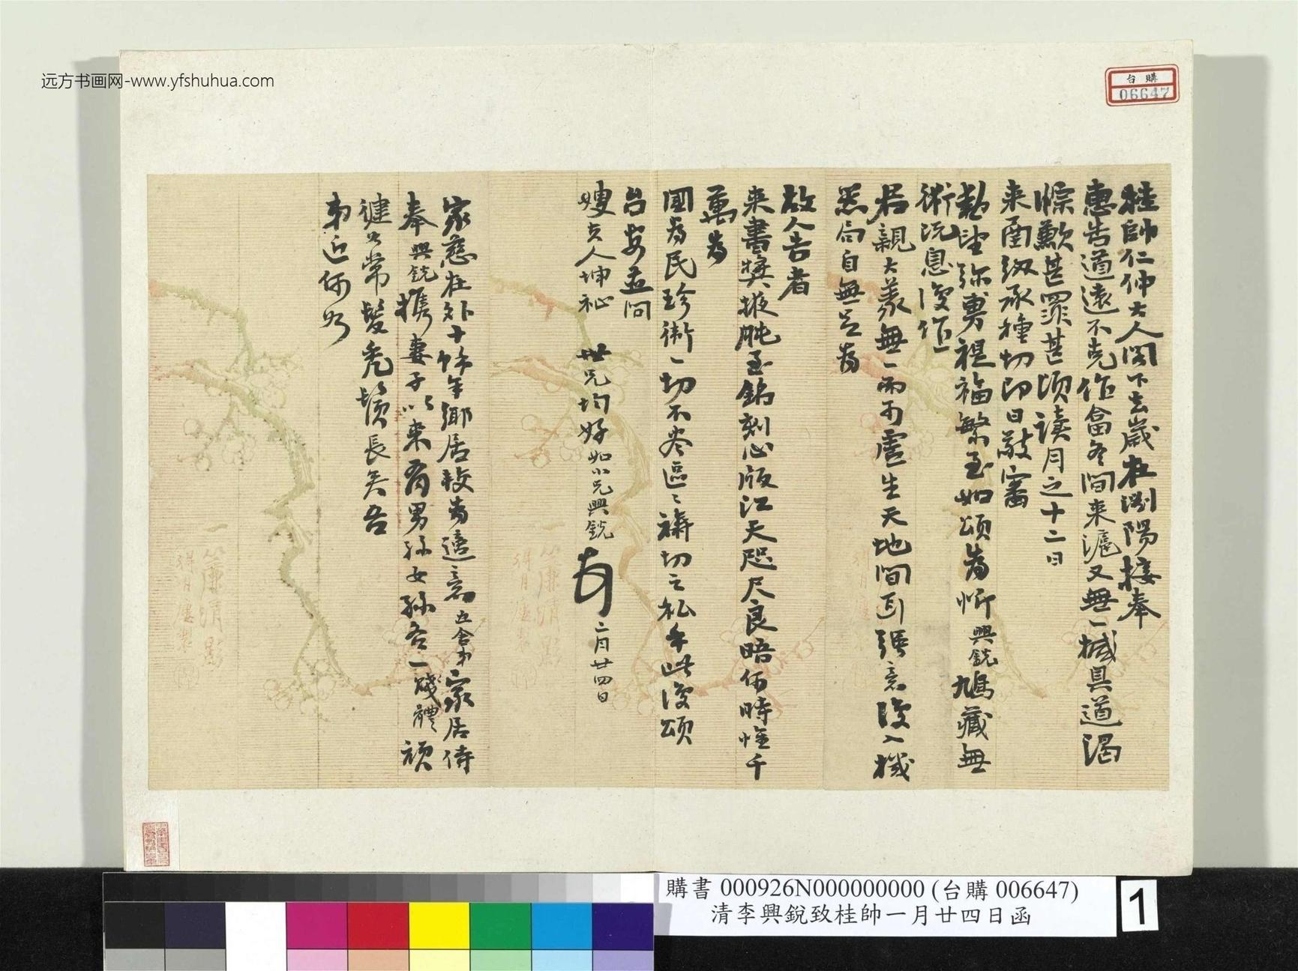 远方书画网-www.yfshuhua.com
台購
06647
桂帥仁仲大人閣下去歲在瀏陽接奉
惠告道遠不克作畣冬間来滬又無一械具道渴
懷歉甚罪甚頃讀月之十二日
来函紉承種切即日敬審
勛望弥勇禔福繁至如頌為忭興銳鳩藏無
術沉息復作
君親大義無一而可虛生天地間耳張意復入機
器局自無足為
故人告者
来書獎掖肫至銘刻心版江天咫尺良晤何時惟千
萬為
國為民珍衛一切不尽區區禱切之私手此復頌
台安並问
嫂夫人坤祉
世兄均好如小兄興銳
頓首
二月廿四日
家慈在外十餘年鄉居較為適意五舍弟家居侍
奉興銳攜妻子以来有男孫女孫各一賤體頑
健如常髮禿鬚長矣吾
弟近何如
一簾清影
購書 000926N000000000 (台購 006647)
清李興銳致桂帥一月廿四日函
1